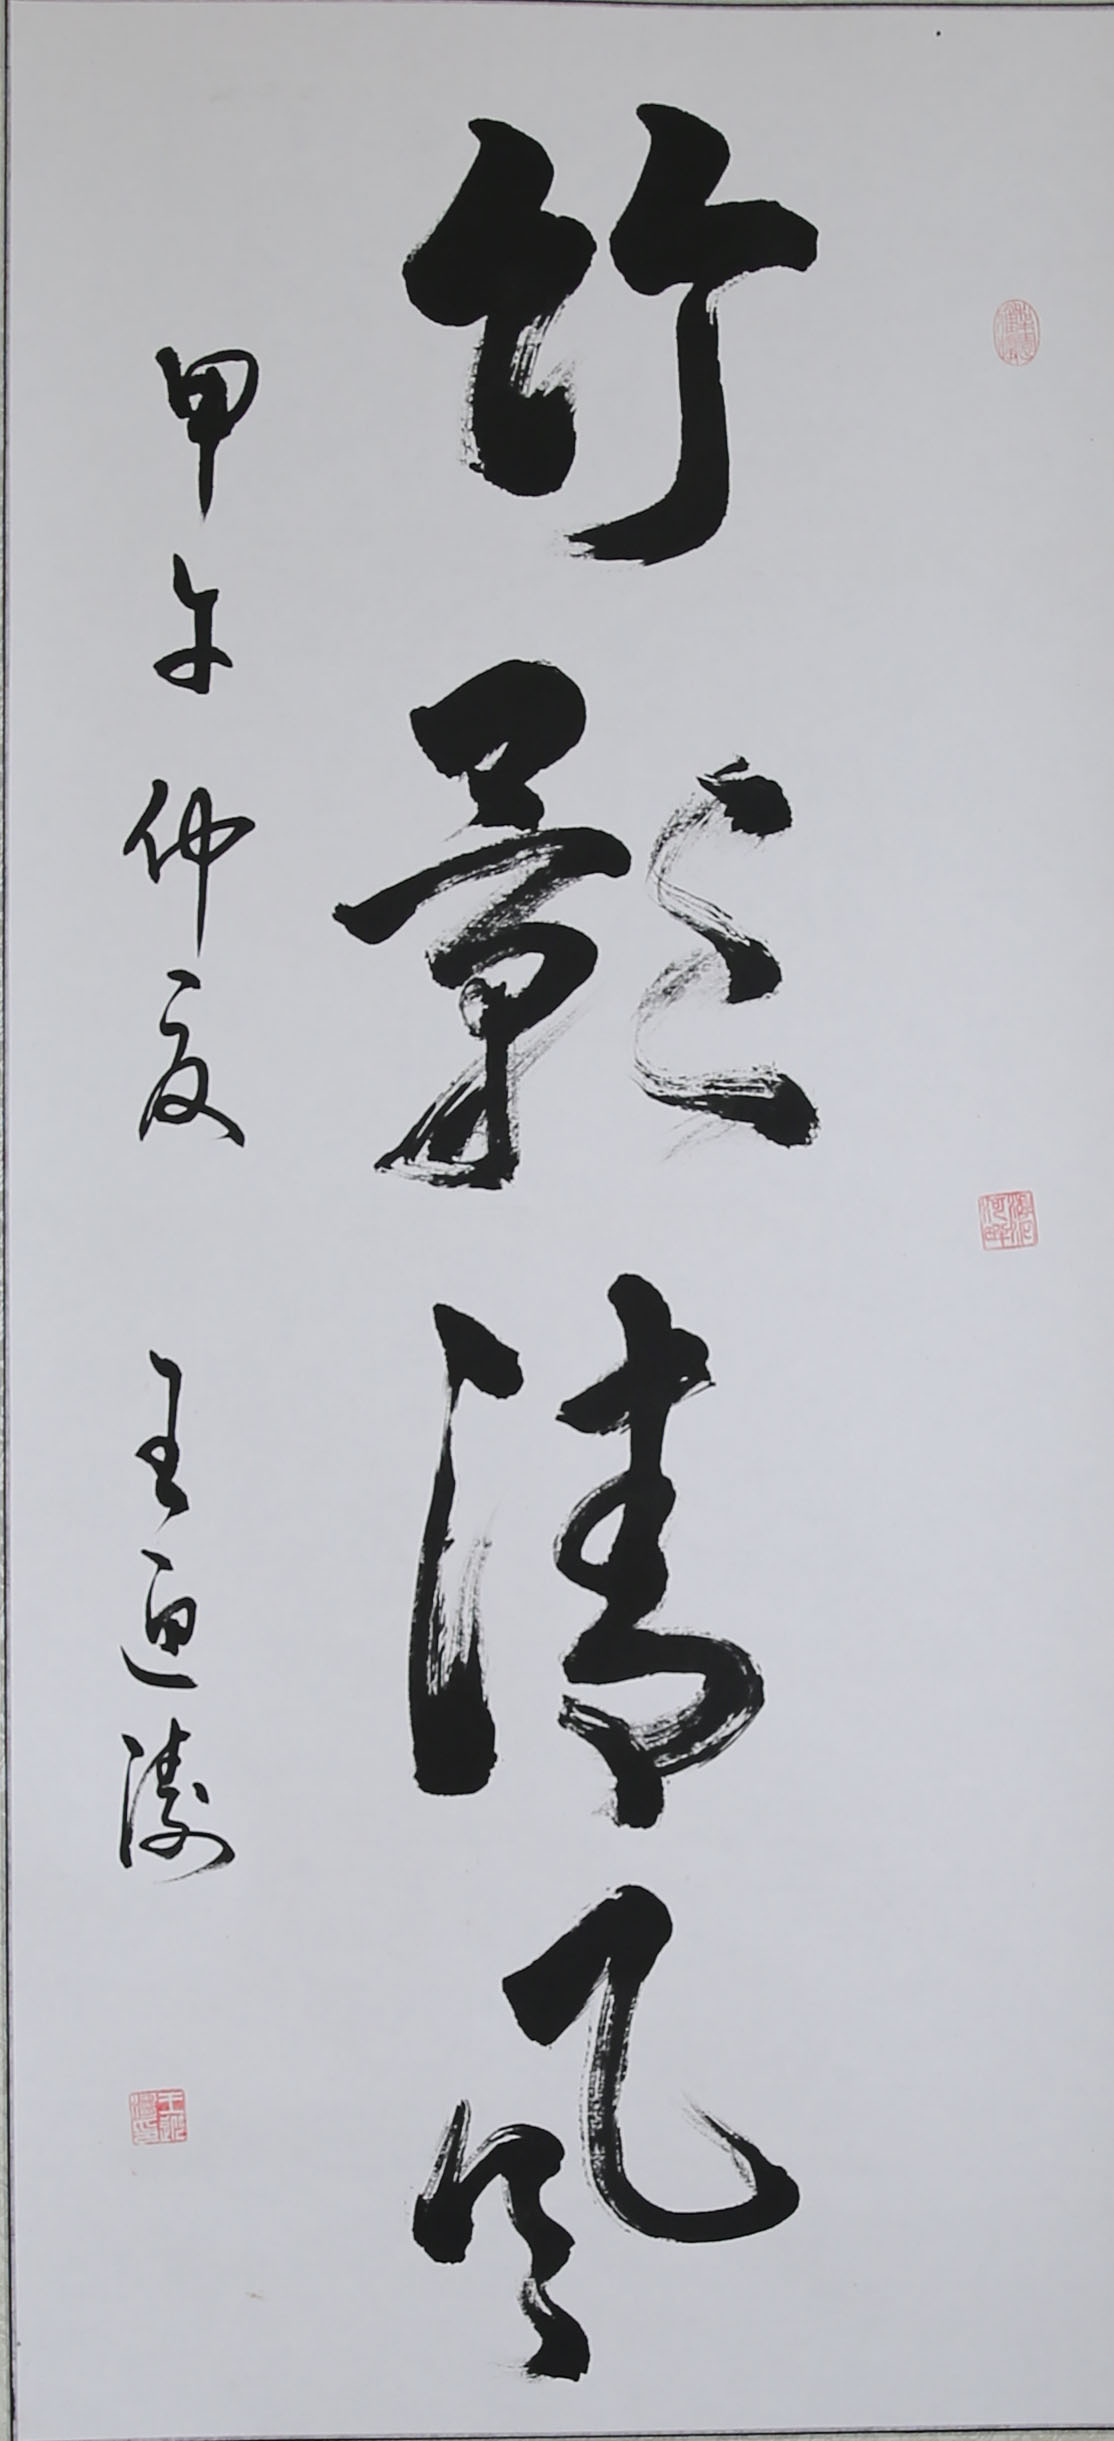 竹影清风
甲午仲夏 王迺涛